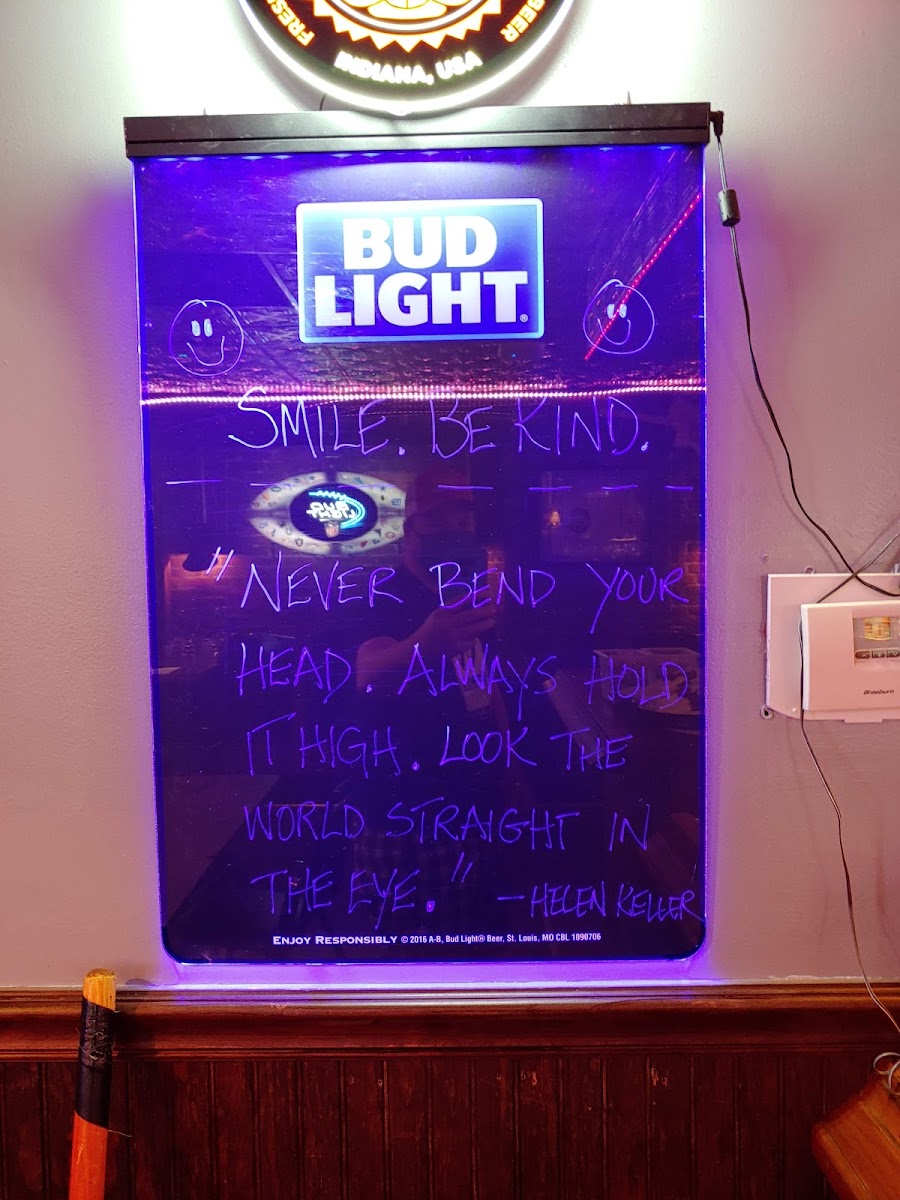 FRESH BEER
INDIANA, USA
BUD
LIGHT®
SMILE. BE KIND.
"NEVER BEND YOUR
HEAD. ALWAYS HOLD
IT HIGH. LOOK THE
WORLD STRAIGHT IN
THE EYE." -HELEN KELLER
ENJOY RESPONSIBLY © 2016 A-B, Bud Light® Beer, St. Louis, MO CBL 1090706
Braeburn